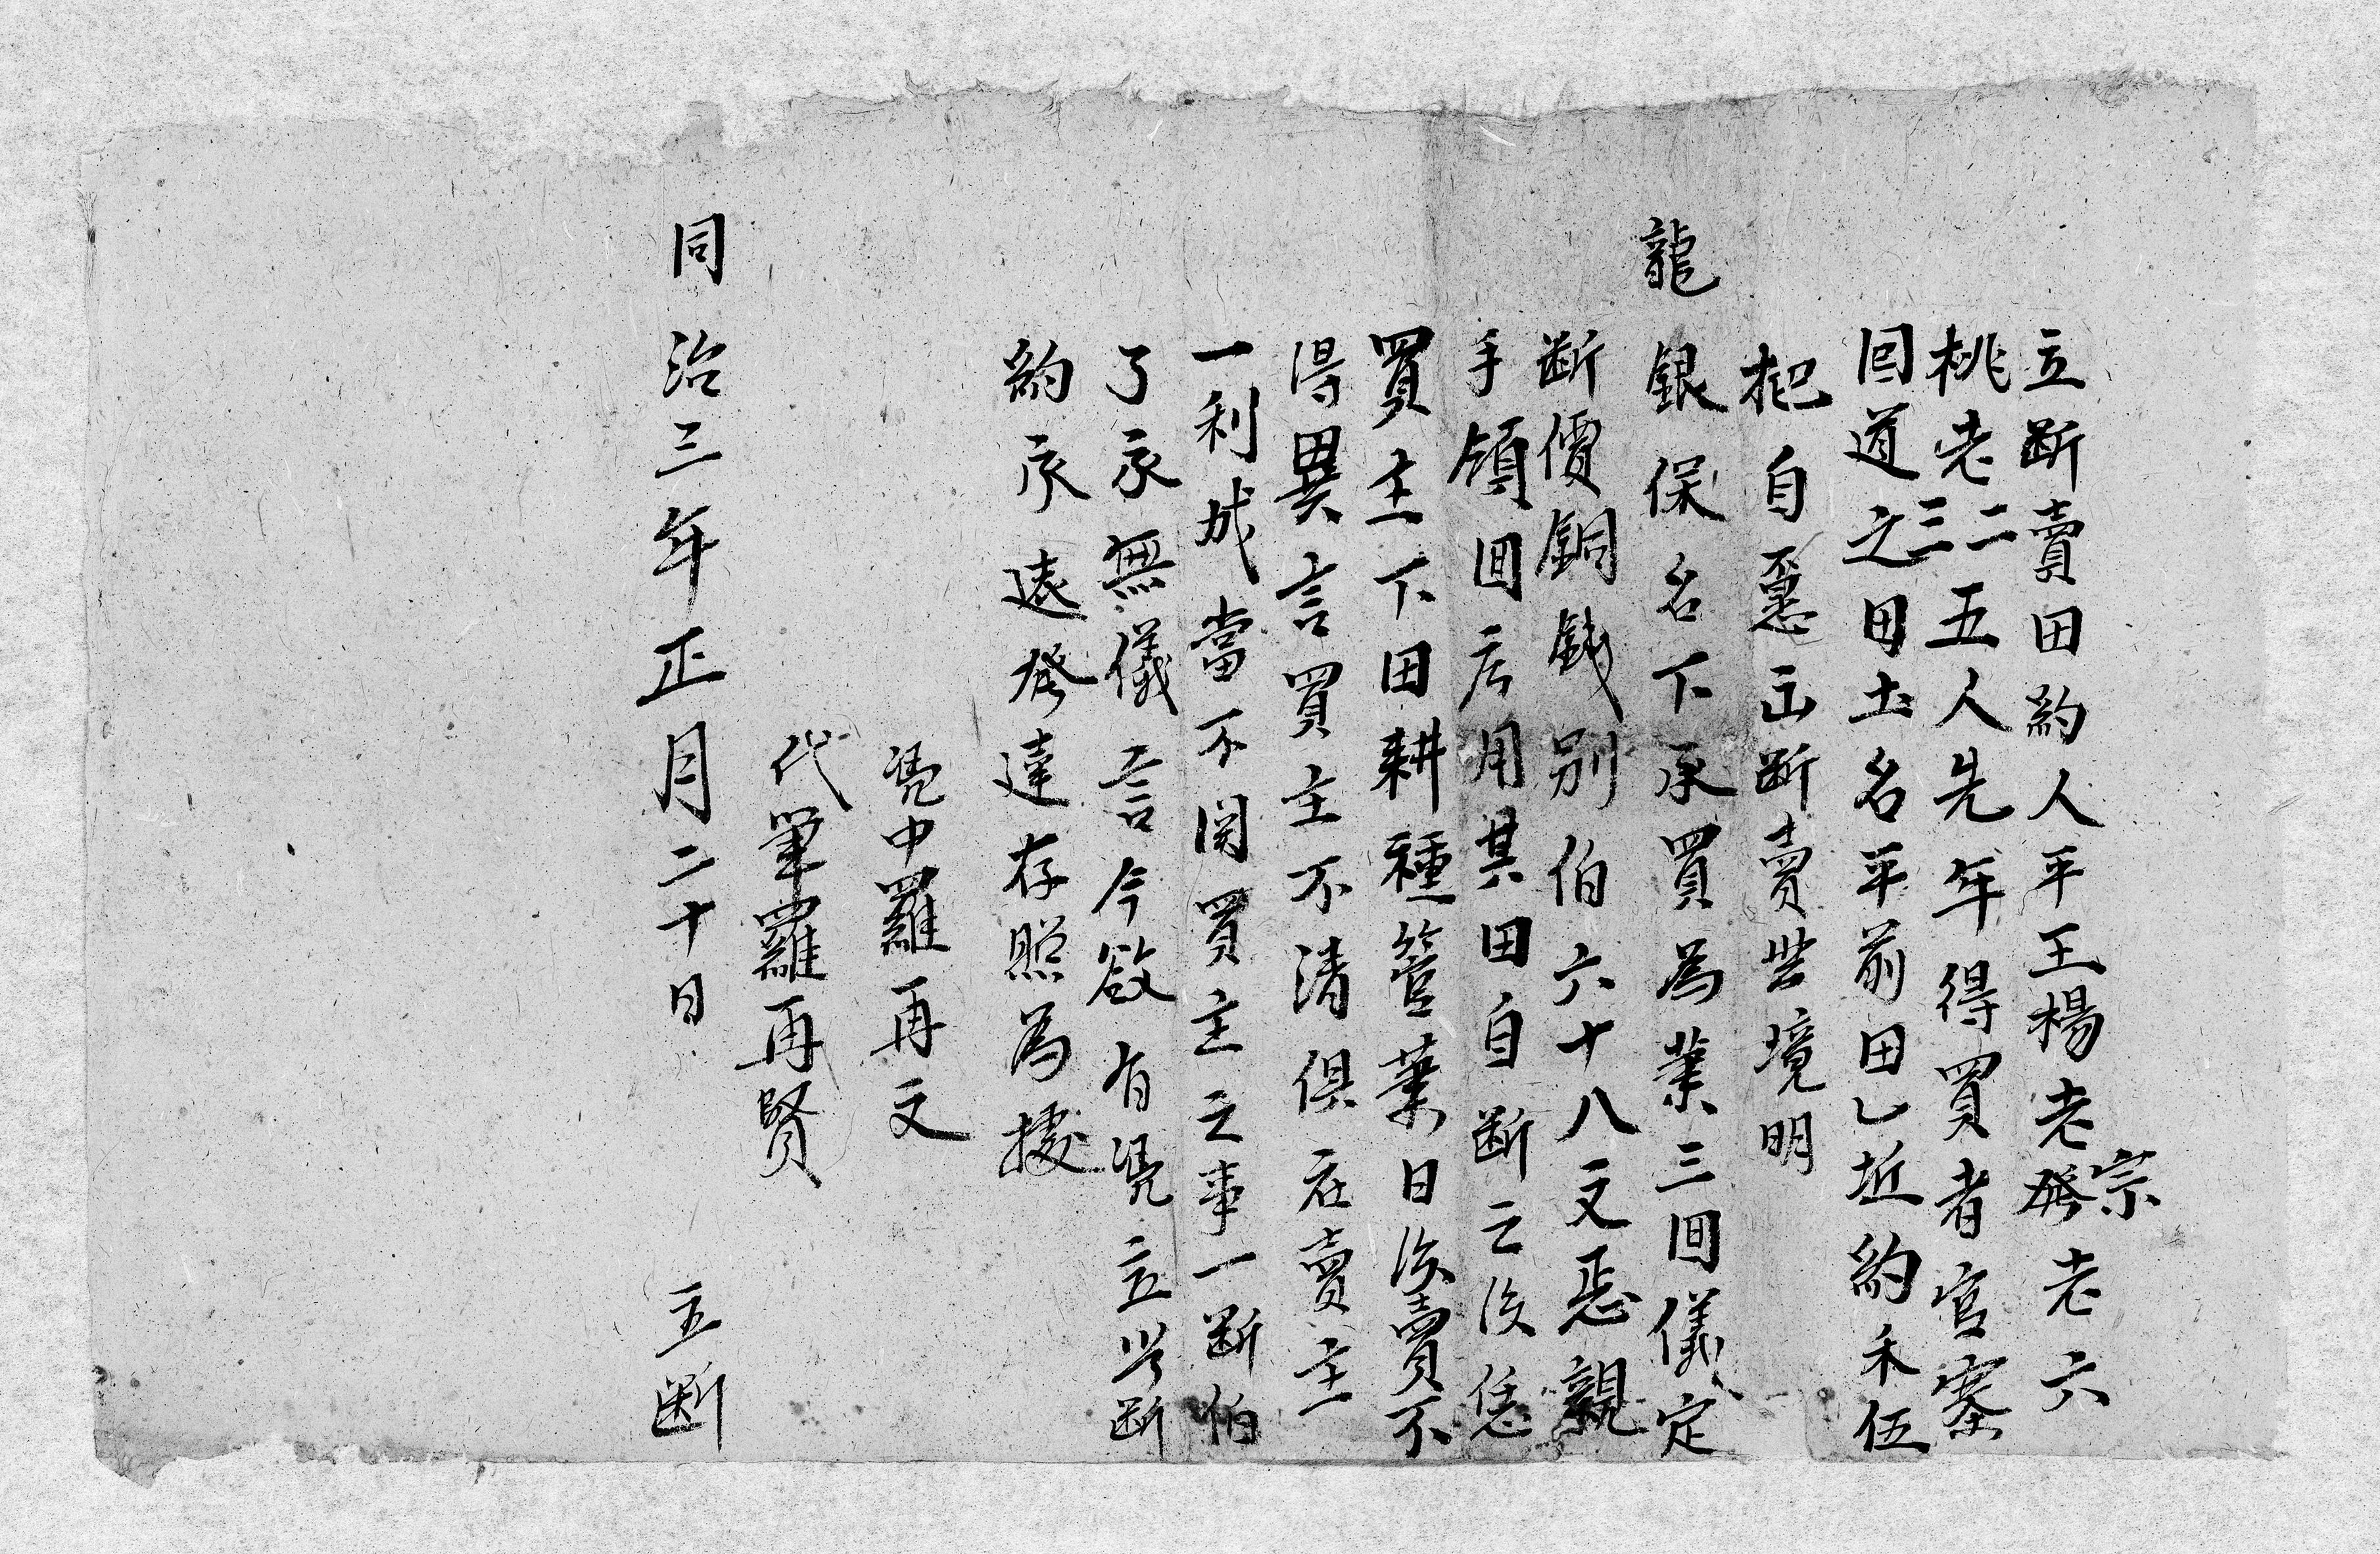 立断賣田約人平王楊老發宗老六
桃老二三五人先年得買者官寨
囙道之田土名平前田乚坵約禾伍
把自愿出断賣当境明
龍銀保名下承買為業三囬儀定
断價銅錢别伯六十八文恁親
手領囬应用其田自断之後恁
買主下田耕種管業日後賣不
得異言買主不清俱在賣主
一利成當不関買主之事一断伯
了永無儀言今欲有凴立此断
約永遠發達存照為據
凴中羅再文
代筆羅再賢
同治三年正月二十日 立断